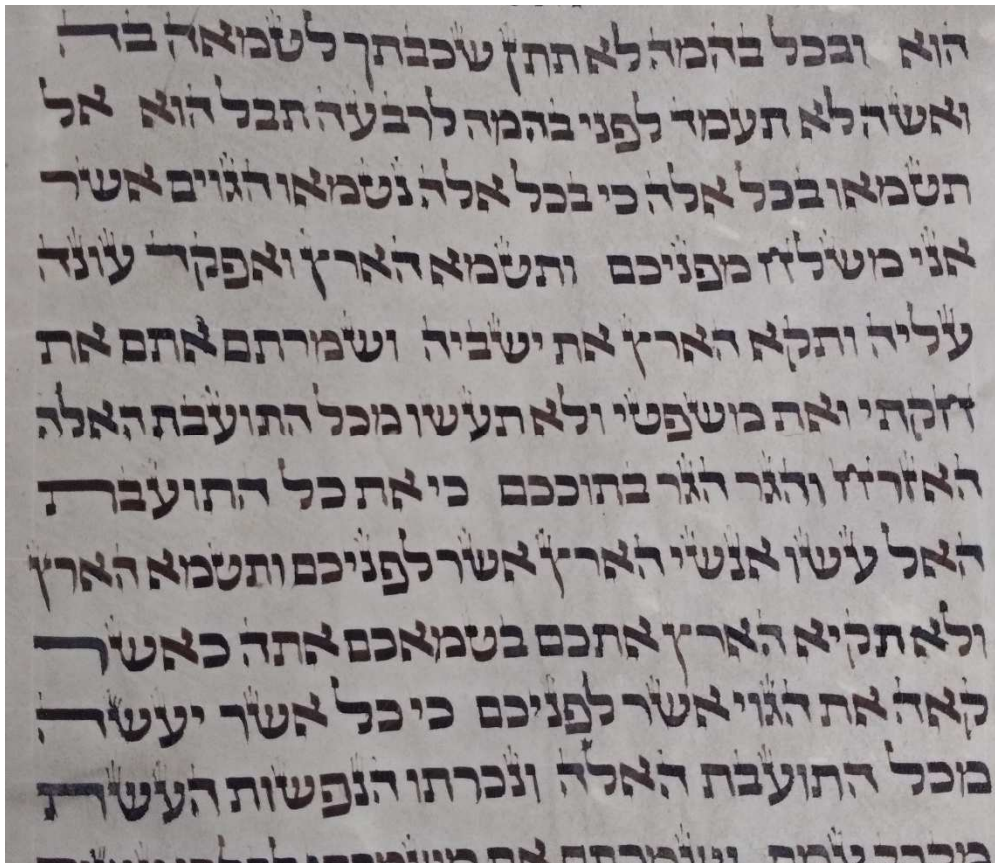 הוא ובכל בהמה לא תתן שכבתך לטמאה בה
ואשה לא תעמד לפני בהמה לרבעה תבל הוא אל
תטמאו בכל אלה כי בכל אלה נטמאו הגוים אשר
אני משלח מפניכם ותטמא הארץ ואפקד עונה
עליה ותקא הארץ את ישביה ושמרתם אתם את
חקתי ואת משפטי ולא תעשו מכל התועבת האלה
האזרח והגר הגר בתוככם כי את כל התועבת
האל עשו אנשי הארץ אשר לפניכם ותטמא הארץ
ולא תקיא הארץ אתכם בטמאכם אתה כאשר
קאה את הגוי אשר לפניכם כי כל אשר יעשה
מכל התועבת האלה ונכרתו הנפשות העשת